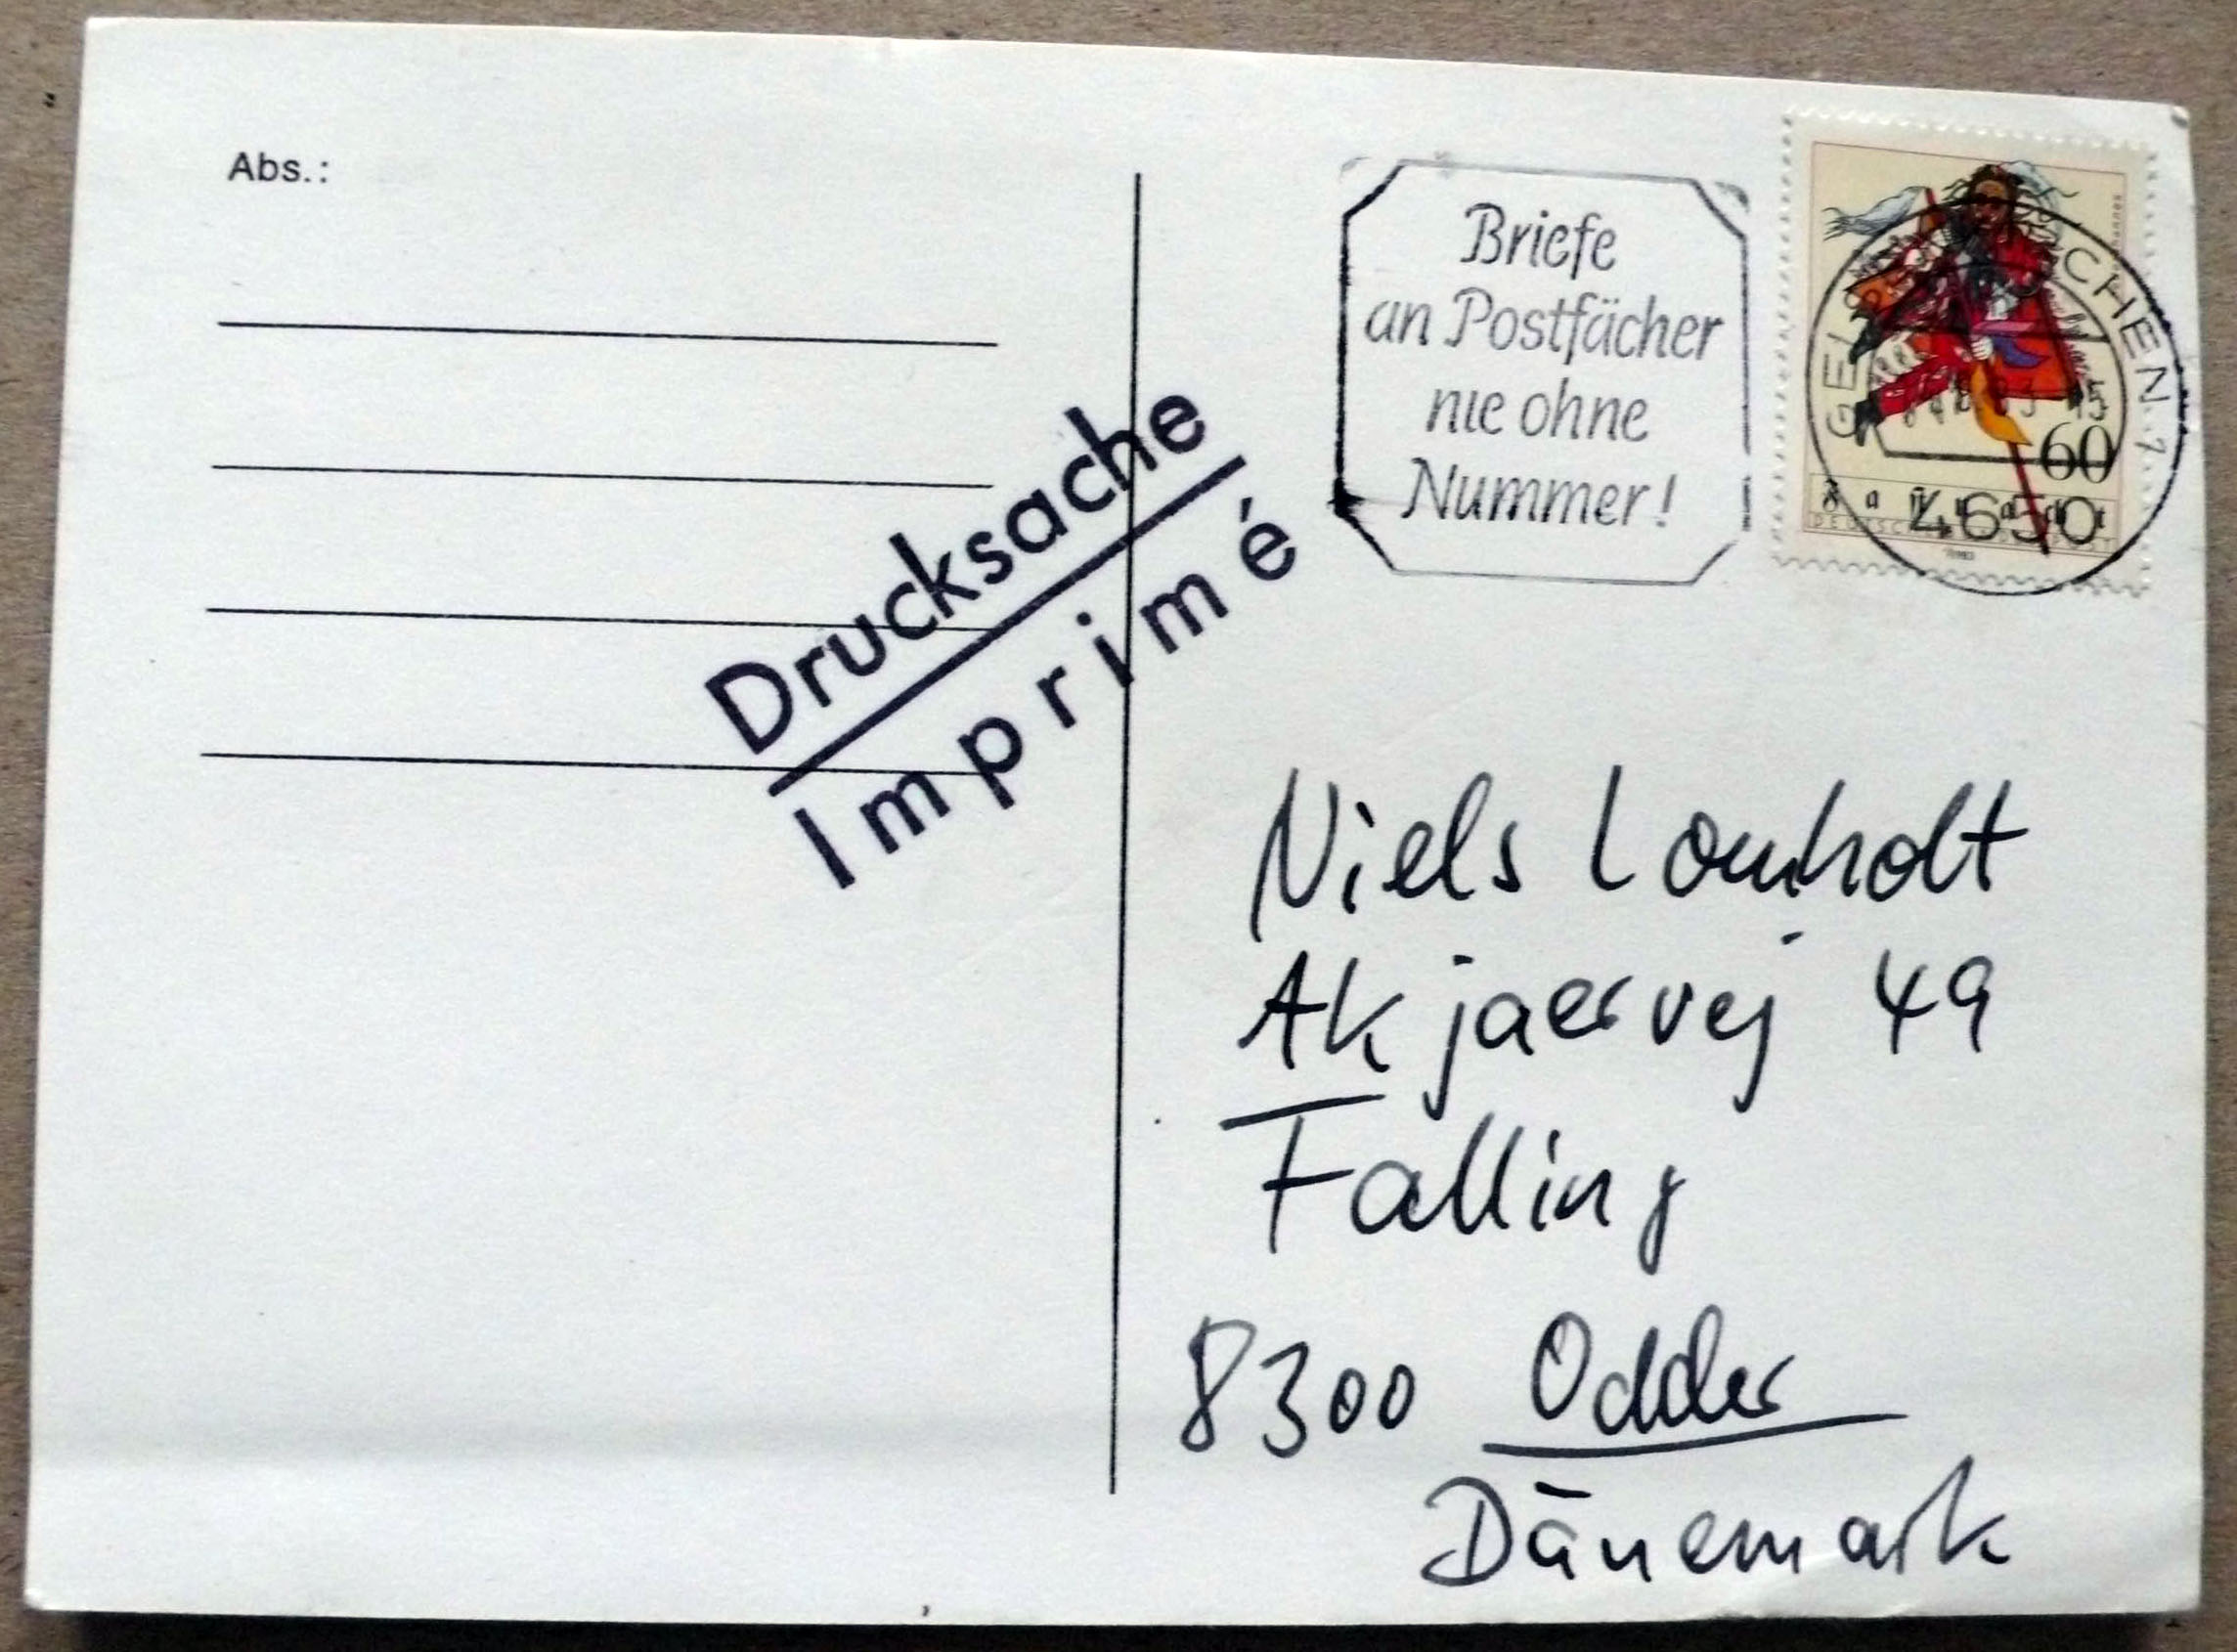 Abs.:
Briefe
an Postfächer
nie ohne
Nummer!
GELSENKIRCHEN 1
60
Fastnacht
DEUTSCHE BUNDESPOST
4650
Drucksache
Imprimé
Niels Lomholt
Akjaervej 49
Falling
8300 Odder
Dänemark